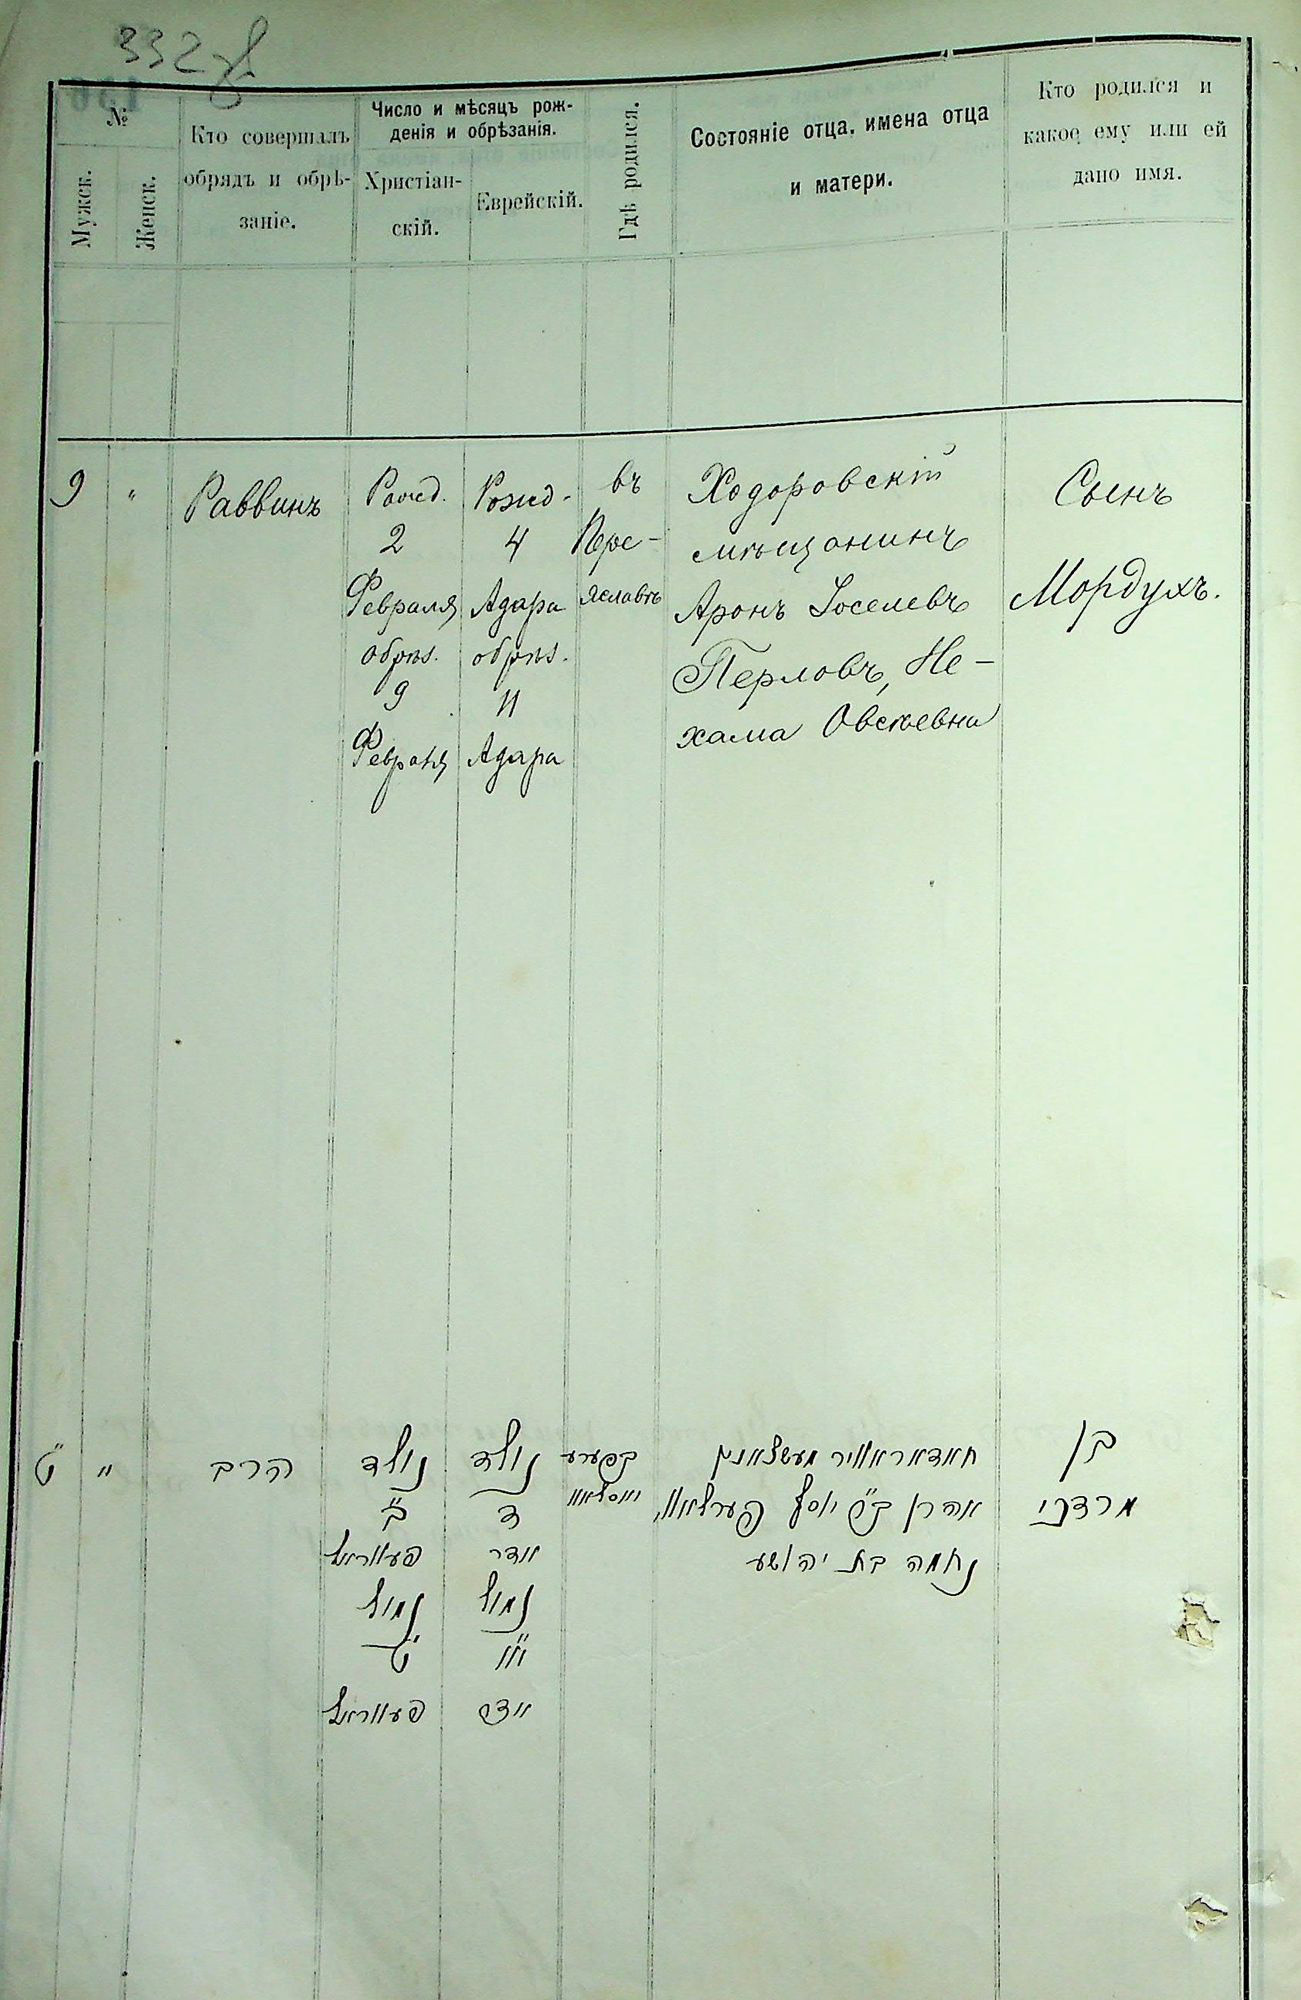 332
№
Мужск.
Женск.
Кто совершалъ
обрядъ и обрѣ-
заніе.
Число и мѣсяцъ рож-
денія и обрѣзанія.
Христіан-
скій.
Еврейскій.
Гдѣ родился.
Состояніе отца, имена отца
и матери.
Кто родился и
какое ему или ей
дано имя.
9
"
Раввинъ
Рожд.
2
Февраля
обрѣз.
9
Февраля
Рожд.
4
Адара
обрѣз.
11
Адара
въ
Пере-
яславѣ
Ходоровскій
мѣщанинъ
Аронъ Іоселевъ
Перловъ, Не-
хама Овсѣевна
Сынъ
Мордухъ.
ט"
"
הרב
נולד
ב"
פעווראל
נמול
ט"
פעווראל
נולד
ד
אדר
נמול
י"א
אדר
בפערע
יאסלאוו
מעשצאנין
אהרן יוסף פערלאוו,
נחמה בת יהושע
בן
מרדכי